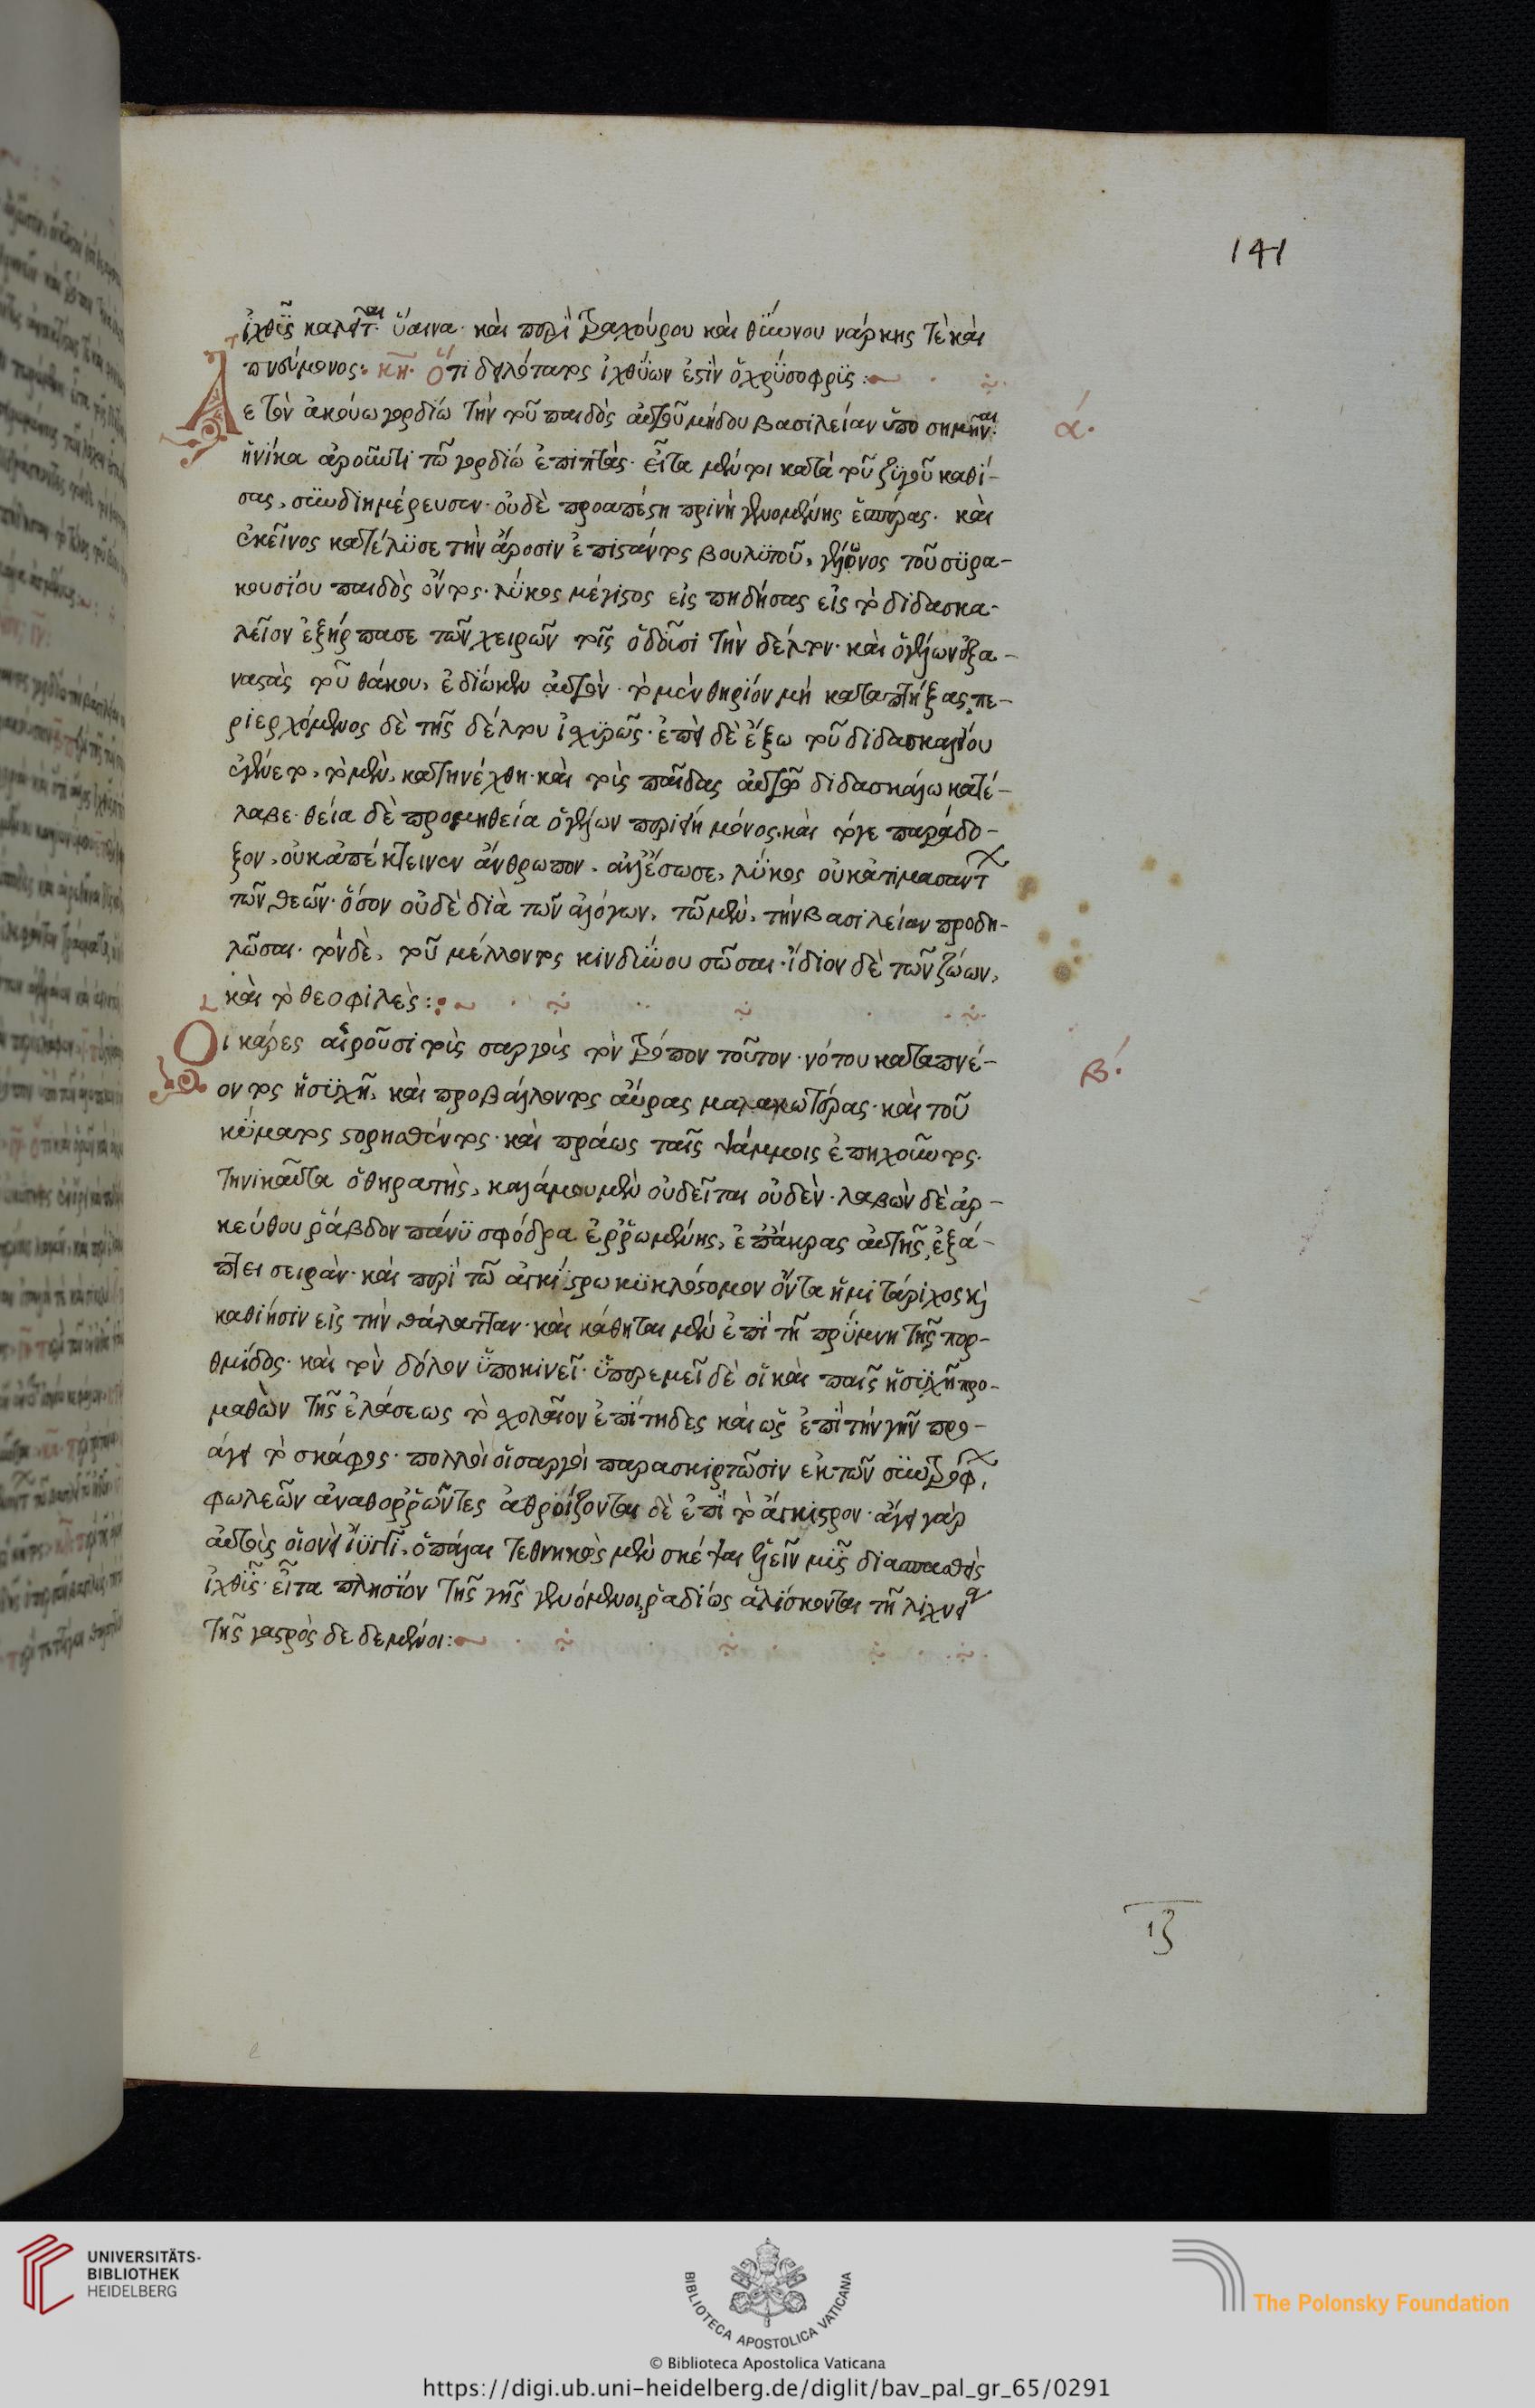 141
ἰχθῦς καλεῖται ὕαινα· καὶ περὶ τραχούρου καὶ θύννου νάρκης τὲ καὶ
πνεύμονος: κη· Ὅτι δειλότατος ἰχθύων ἐστὶν ὁ χρύσοφρυς:
Αετὸν ἀκούω γορδίω τὴν τοῦ παιδὸς αὐτοῦ μήδου βασιλείαν ὑποσημῆναι·
α΄.
ἡνίκα ἀροῦντι τῶ γορδίω ἐπιπτάς· εἶτα μέντοι κατὰ τοῦ ζυγοῦ καθί-
σας, συνδιημέρευσεν· οὐδὲ προαπέστη πρινὴ γενομένης ἑσπέρας· καὶ
ἐκεῖνος κατέλυσε τὴν ἄροσιν ἐπιστάντος βουλυτοῦ, γέλωνος τοῦ συρα-
κουσίου παιδὸς ὄντος· λύκος μέγιστος εἰς πηδήσας εἰς τὸ διδασκα-
λεῖον ἐξήρπασε τῶν χειρῶν τοῖς ὀδοῦσι τὴν δέλτον· καὶ ὁ γέλων ἐξα-
ναστὰς τοῦ θάκου, ἐδίωκεν αὐτὸν· τὸ μὲν θηρίον μὴ καταπτήξας, πε-
ριεχόμενος δὲ τῆς δέλτου ἰσχυρῶς· ἐπεὶ δὲ ἔξω τοῦ διδασκαλείου
ἐγένετο, τὸ μὲν, κατηνέχθη· καὶ τοὺς παῖδας αὐτῶ διδασκάλω κατέ-
λαβε· θεία δὲ προμηθεία ὁ γέλων περιῆν μόνος· καὶ τόγε παράδο-
ξον, οὐκ ἀπέκτεινεν ἄνθρωπον, ἀλλ' ἔσωσε, λύκος οὐκ ἀτιμασάντων
τῶν θεῶν· ὅσον οὐδὲ διὰ τῶν ἀλόγων, τῶ μὲν, τὴν βασιλείαν προδη-
λῶσαι· τὸν δὲ, τοῦ μέλλοντος κινδύνου σῶσαι· ἴδιον δὲ τῶν ζώων,
καὶ τὸ θεοφιλὲς:
Οι κάρες αἱροῦσι τοὺς σαργοὺς τὸν τρόπον τοῦτον· νότου καταπνέ-
β΄.
οντος ἡσυχῆ, καὶ προβάλλοντος αὔρας μαλακωτέρας· καὶ τοῦ
κύματος στορηθέντος· καὶ πράως ταῖς ψάμμοις ἐπηχοῦντος·
τηνικαῦτα ὁ θηρατὴς, καλάμου μὲν οὐδεῖται οὐδὲν· λαβὼν δὲ ἀρ-
κεύθου ῥάβδον πάνυ σφόδρα ἐρῥωμένης, ἐπάκρας αὐτῆς ἐξά-
πτει σειρὰν· καὶ περὶ τῶ ἀγκίστρω κυκλόστομον ὄντα ἡμιτάριχος καὶ
καθίησιν εἰς τὴν θάλατταν· καὶ κάθηται μὲν ἐπὶ τῆ πρύμνη τῆς πορ-
θμίδος· καὶ τὸν δόλον ὑποκινεῖ· ὑπορεμεῖ δὲ οἱ καὶ παῖς ἡσυχῆ προ-
μαθὼν τῆς ἐλάσεως τὸ σχολαῖον ἐπίτηδες καὶ ὡς ἐπὶ τὴν γῆν προ-
άγει τὸ σκάφος· πολλοὶ οἱ σαργοὶ παρασκιρτῶσιν ἐκ τῶν συντρόφων
φωλεῶν ἀναθορῥῶντες ἀθροίζονται δὲ ἐπὶ τὸ ἄγκιστρον· ἄγει γὰρ
αὐτοὺς οἱονεὶ ἴυγγι, ὁ πάλαι τεθνηκὼς μὲν διαπασθεὶς
ἰχθῦς· εἶτα πλησίον τῆς γῆς γενόμενοι, ῥαδίως ἁλίσκονται τῆ λιχνεία
τῆς γαστρὸς δεδεμένοι:
ιζ
UNIVERSITÄTS-
BIBLIOTHEK
HEIDELBERG
BIBLIOTECA APOSTOLICA VATICANA
The Polonsky Foundation
© Biblioteca Apostolica Vaticana
https://digi.ub.uni-heidelberg.de/diglit/bav_pal_gr_65/0291